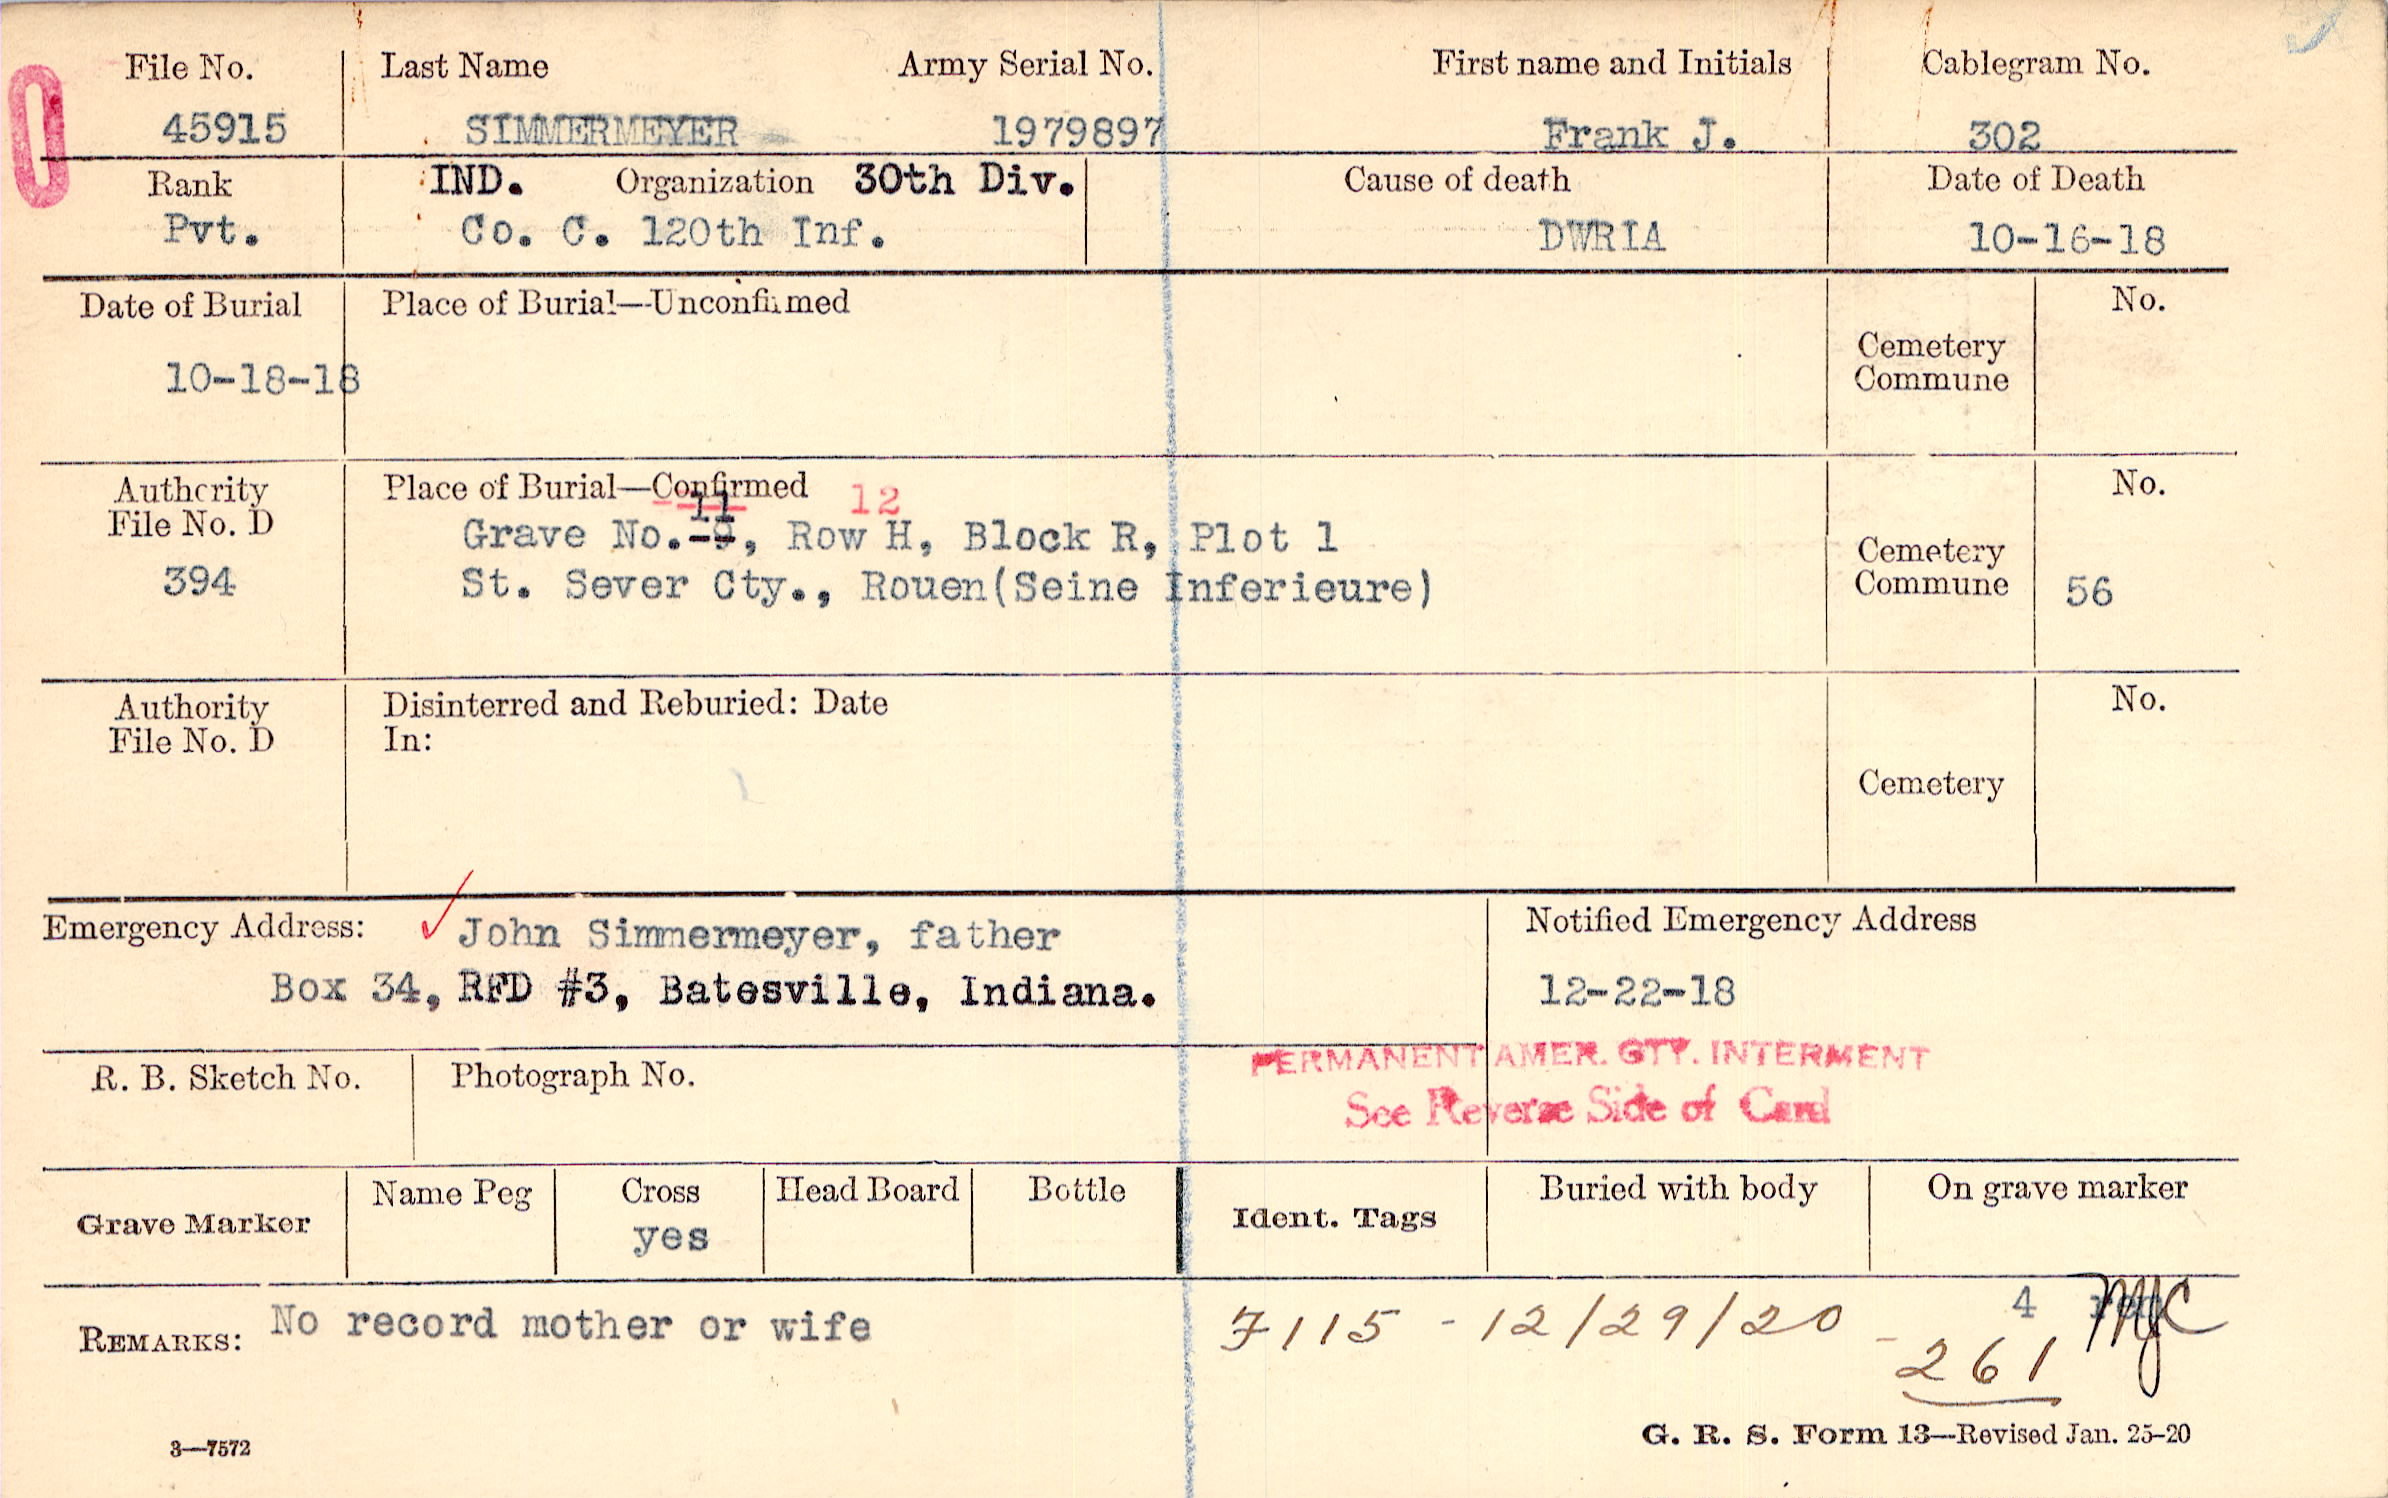 File No. Last Name Army Serial No. First name and Initials Cablegram No.
45915 SIMMERMEYER 1979897 Frank J. 302
Rank IND. Organization 30th Div. Cause of death Date of Death
Pvt. Co. C. 120th Inf. DWRIA 10-16-18
Date of Burial Place of Burial—Unconfirmed No.
Cemetery
Commune
10-18-18
Authority Place of Burial—Confirmed No.
File No. D 11 12
Grave No.-9, Row H, Block R, Plot 1
394 St. Sever Cty., Rouen(Seine Inferieure) Cemetery
Commune 56
Authority Disinterred and Reburied: Date No.
File No. D In:
Cemetery
Emergency Address: John Simmermeyer, father Notified Emergency Address
Box 34, RFD #3, Batesville, Indiana. 12-22-18
PERMANENT AMER. CTY. INTERMENT
R. B. Sketch No. Photograph No.
See Reverse Side of Card
Grave Marker Name Peg Cross Head Board Bottle Ident. Tags Buried with body On grave marker
yes
REMARKS: No record mother or wife 7115 - 12/29/20 - 4 MJC
261
3—7572 G. R. S. Form 13—Revised Jan. 25-20